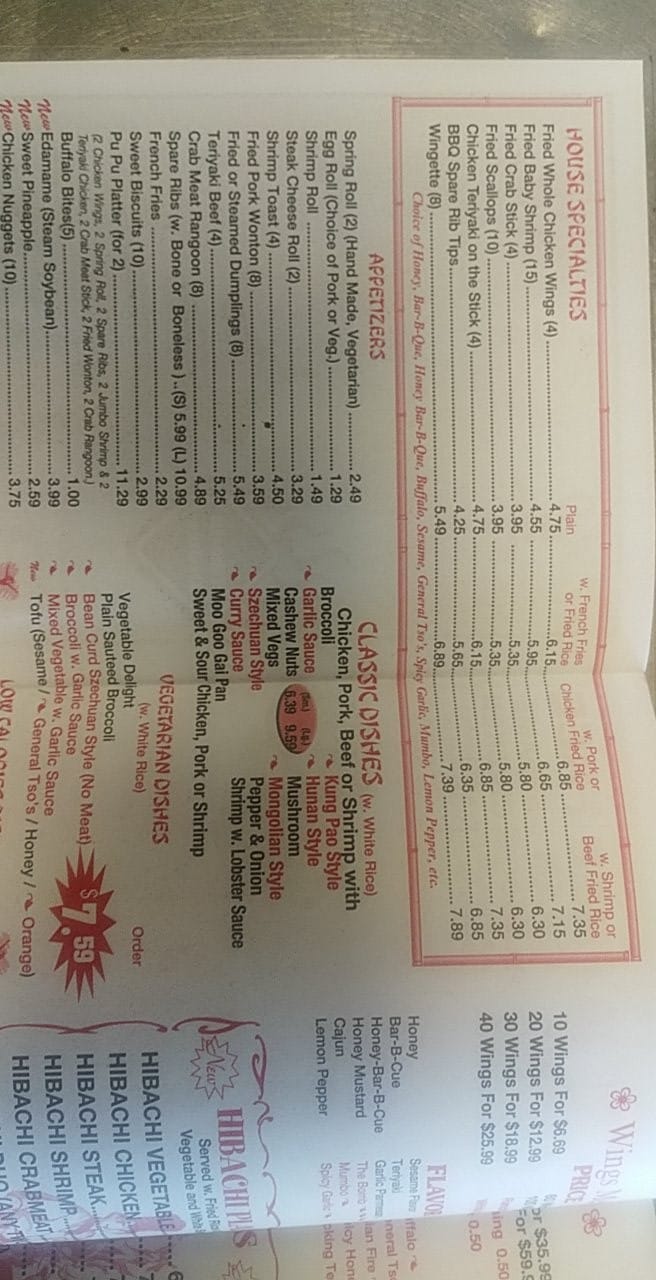 HOUSE SPECIALTIES
Plain
w. French Fries or Fried Rice
w. Pork or Chicken Fried Rice
w. Shrimp or Beef Fried Rice
Fried Whole Chicken Wings (4) 4.75 6.15 6.85 7.35
Fried Baby Shrimp (15) 4.55 5.95 6.65 7.15
Fried Crab Stick (4) 3.95 5.35 5.80 6.30
Fried Scallops (10) 3.95 5.35 5.80 6.30
Chicken Teriyaki on the Stick (4) 4.75 6.15 6.85 7.35
BBQ Spare Rib Tips 4.25 5.65 6.35 6.85
Wingette (8) 5.49 6.89 7.39 7.89
Choice of Honey, Bar-B-Que, Honey Bar-B-Que, Buffalo, Sesame, General Tso's, Spicy Garlic, Mumbo, Lemon Pepper, etc.
APPETIZERS
Spring Roll (2) (Hand Made, Vegetarian) 2.49
Egg Roll (Choice of Pork or Veg.) 1.29
Shrimp Roll 1.49
Steak Cheese Roll (2) 3.29
Shrimp Toast (4) 4.50
Fried Pork Wonton (8) 3.59
Fried or Steamed Dumplings (8) 5.49
Teriyaki Beef (4) 5.25
Crab Meat Rangoon (8) 4.89
Spare Ribs (w. Bone or Boneless) .. (S) 5.99 (L) 10.99
French Fries 2.29
Sweet Biscuits (10) 2.99
Pu Pu Platter (for 2) 11.29
(2 Chicken Wings, 2 Spring Roll, 2 Spare Ribs, 2 Jumbo Shrimp & 2
Teriyaki Chicken, 2 Crab Meat Stick, 2 Fried Wonton, 2 Crab Rangoon.)
Buffalo Bites(5) 1.00
New Edamame (Steam Soybean) 3.99
New Sweet Pineapple 2.59
New Chicken Nuggets (10) 3.75
CLASSIC DISHES (w. White Rice)
Chicken, Pork, Beef or Shrimp with
Broccoli
Garlic Sauce
Cashew Nuts
Mixed Vegs
Szechuan Style
Curry Sauce
Moo Goo Gai Pan
Sweet & Sour Chicken, Pork or Shrimp
(Sm.) (Lg.)
6.39 9.59
Kung Pao Style
Hunan Style
Mushroom
Mongolian Style
Pepper & Onion
Shrimp w. Lobster Sauce
VEGETARIAN DISHES
(w. White Rice)
Order
Vegetable Delight
Plain Sauteed Broccoli
Bean Curd Szechuan Style (No Meat)
Broccoli w. Garlic Sauce
Mixed Vegetable w. Garlic Sauce
New Tofu (Sesame / General Tso's / Honey / Orange)
$7.59
Wings
PRIC
10 Wings For $6.69
20 Wings For $12.99
30 Wings For $18.99
40 Wings For $25.99
or $35.99
0.50
0.50
FLAVO
Honey
Bar-B-Cue
Honey-Bar-B-Cue
Honey Mustard
Cajun
Lemon Pepper
Teriyaki
New
HIBACHI
Served w. Fried
Vegetable and White
HIBACHI VEGETABLE
HIBACHI CHICKEN
HIBACHI STEAK
HIBACHI SHRIMP
HIBACHI CRABMEAT